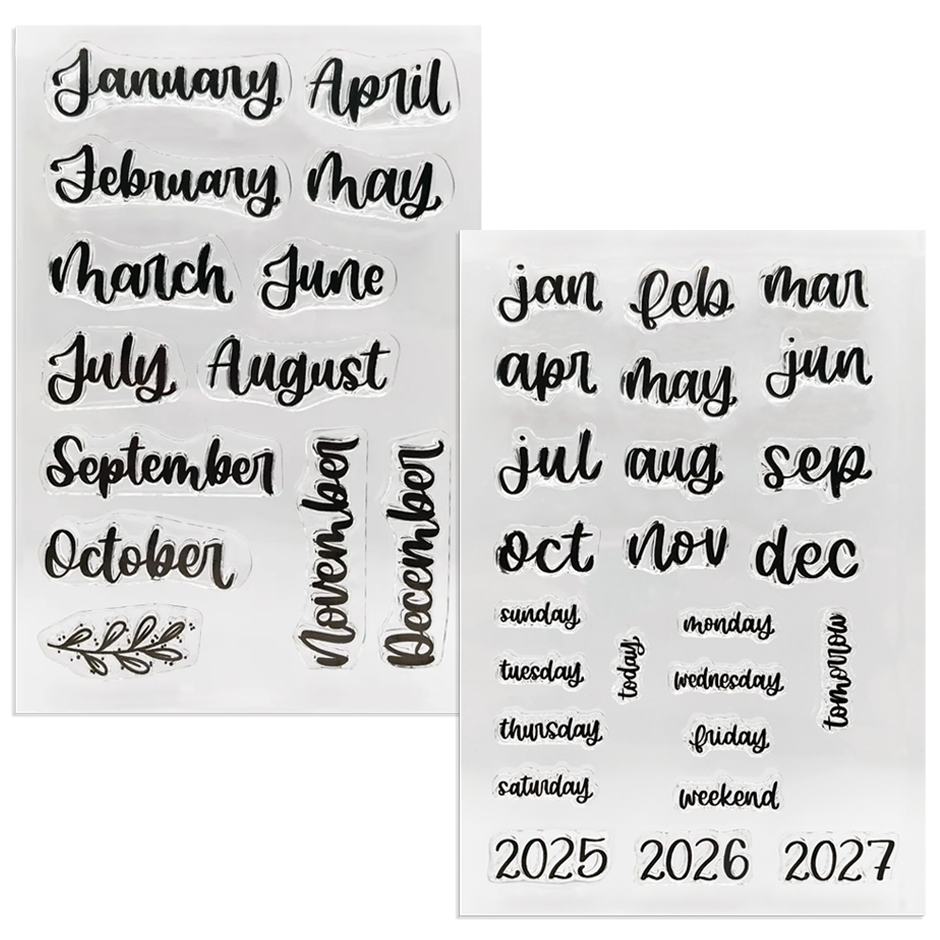 January April
February May
March June
July August
September
October
November
December
jan feb mar
apr may jun
jul aug sep
oct nov dec
sunday monday
tuesday today wednesday tomorrow
thursday friday
saturday weekend
2025 2026 2027